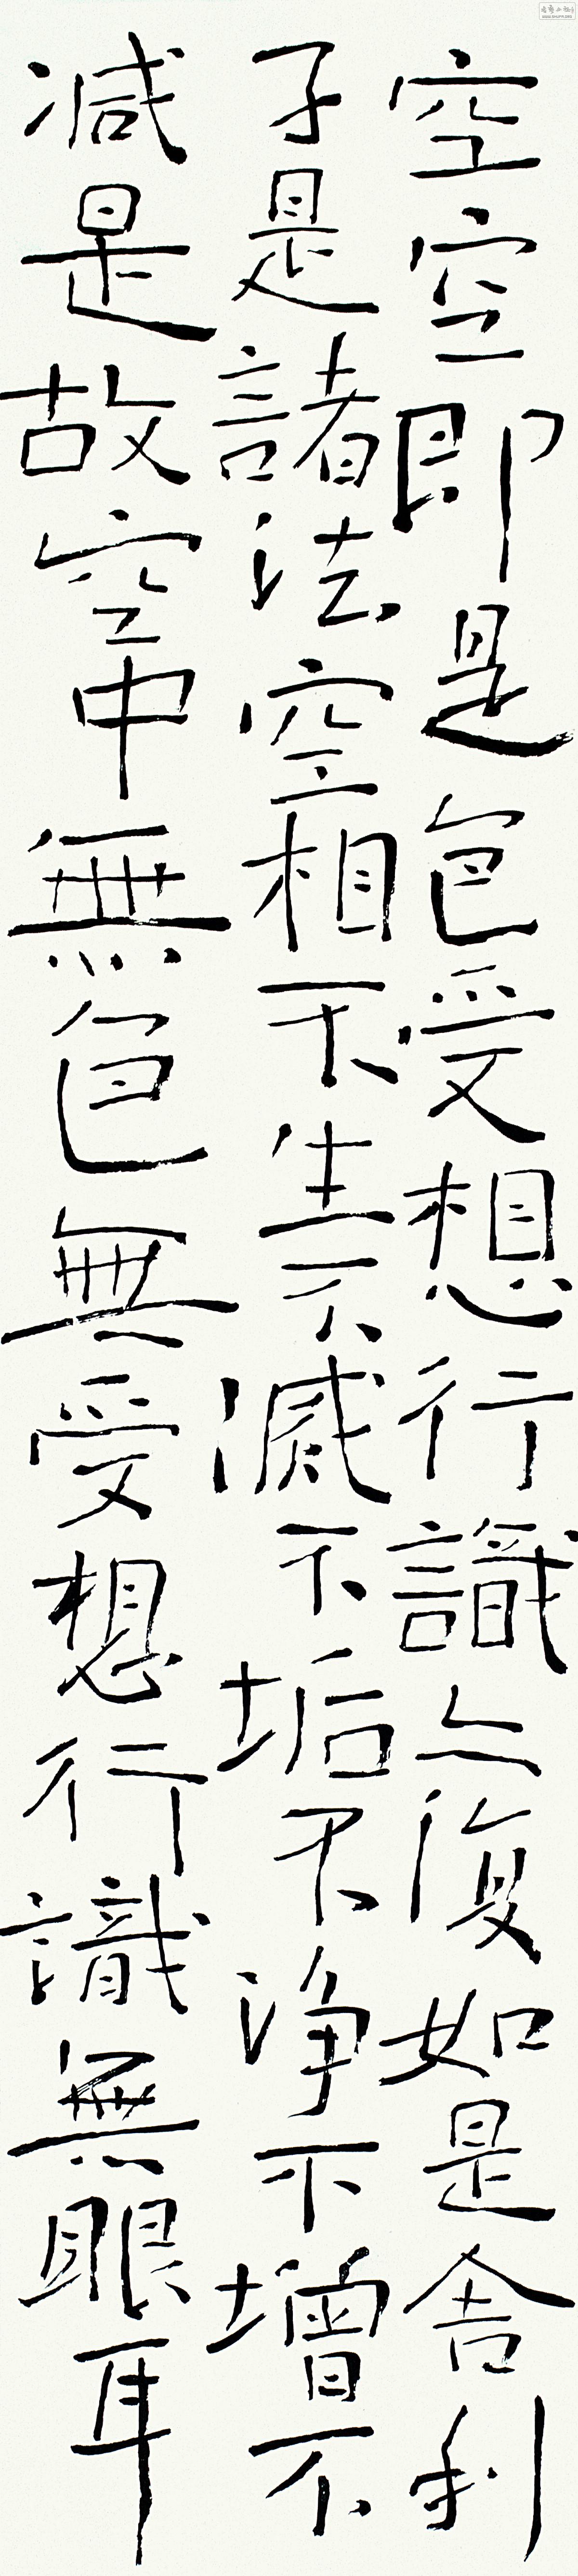 空空即是色受想行識亦復如是舍利
子是諸法空相不生不滅不垢不净不增不
减是故空中無色無受想行識無眼耳